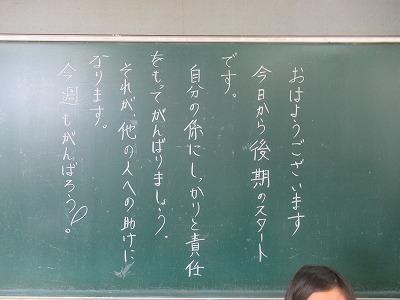 おはようございます
今日から後期のスタート
です。
自分の係にしっかりと責任
をもってがんばりましょう。
それが、他の人への助けに
なります。
今週もがんばろう！。